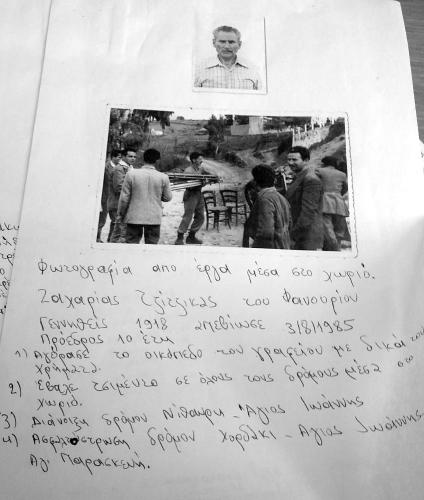 Φωτογραφία απο έργα μέσα στο χωριό.
Ζαχαρίας Τζιτζικας του Φανουρίου
Γεννηθείς 1918 απεβίωσε 3/8/1985
Πρόεδρος 10 έτη
1) Αγόρασε το οικόπεδο του γραφείου με δικά του
χρήματα.
2) Έβαλε τσιμέντο σε όλους τους δρόμους μέσα στο
χωριό.
3) Διάνοιξη δρόμου Νίθαυρη - Άγιος Ιωάννης
4) Ασφαλτόστρωση δρόμου Χορδάκι - Αγιος Ιωάννης
Αγ Παρασκευή.